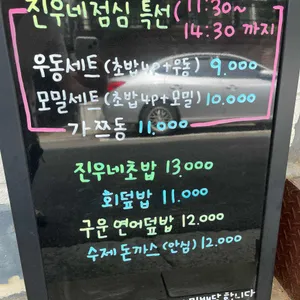 진우네 점심 특선 (11:30~
14:30 까지
우동세트 (초밥4P+우동) 9.000
모밀세트 (초밥4P+모밀) 10.000
가쯔동 11.000
진우네초밥 13.000
회덮밥 11.000
구운 연어덮밥 12.000
수제 돈까스 (안심) 12.000